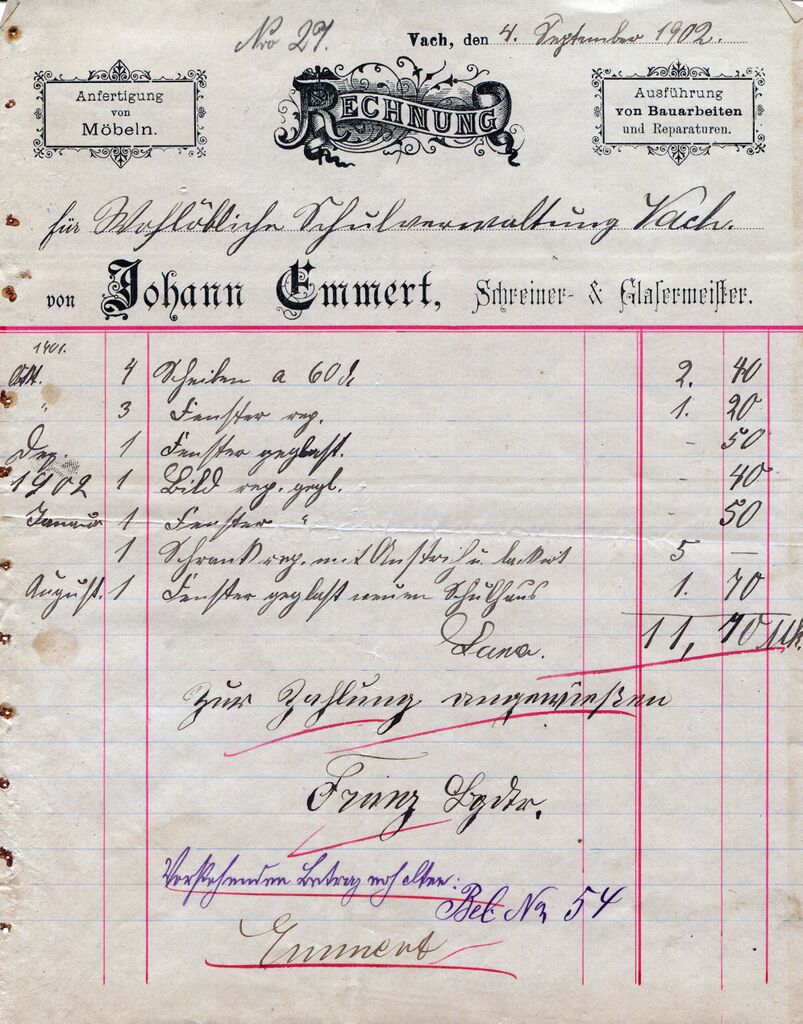 Nro 27.
Vach, den 4. September 1902.
Anfertigung
von
Möbeln.
RECHNUNG
Ausführung
von Bauarbeiten
und Reparaturen.
für Wohllöbliche Schulverwaltung Vach.
von Johann Emmert, Schreiner- & Glasermeister.
1901.
Okt. 4 Scheiben a 60 d 2. 40
" 3 Fenster rep. 1. 20
Dez. 1 Fenster geglast. - 50
1902 1 Bild rep. gegl. - 40
Januar 1 Fenster " - 50
1 Schrank rep. mit Anstrich u. lackirt 5 —
August. 1 Fenster geglast neuen Schulhaus 1. 70
Sa. 11,70 Mk.
Zur Zahlung angewießen
Bgstr.
Vorstehenden Betrag erhalten:
Bel: No 54
Emmert